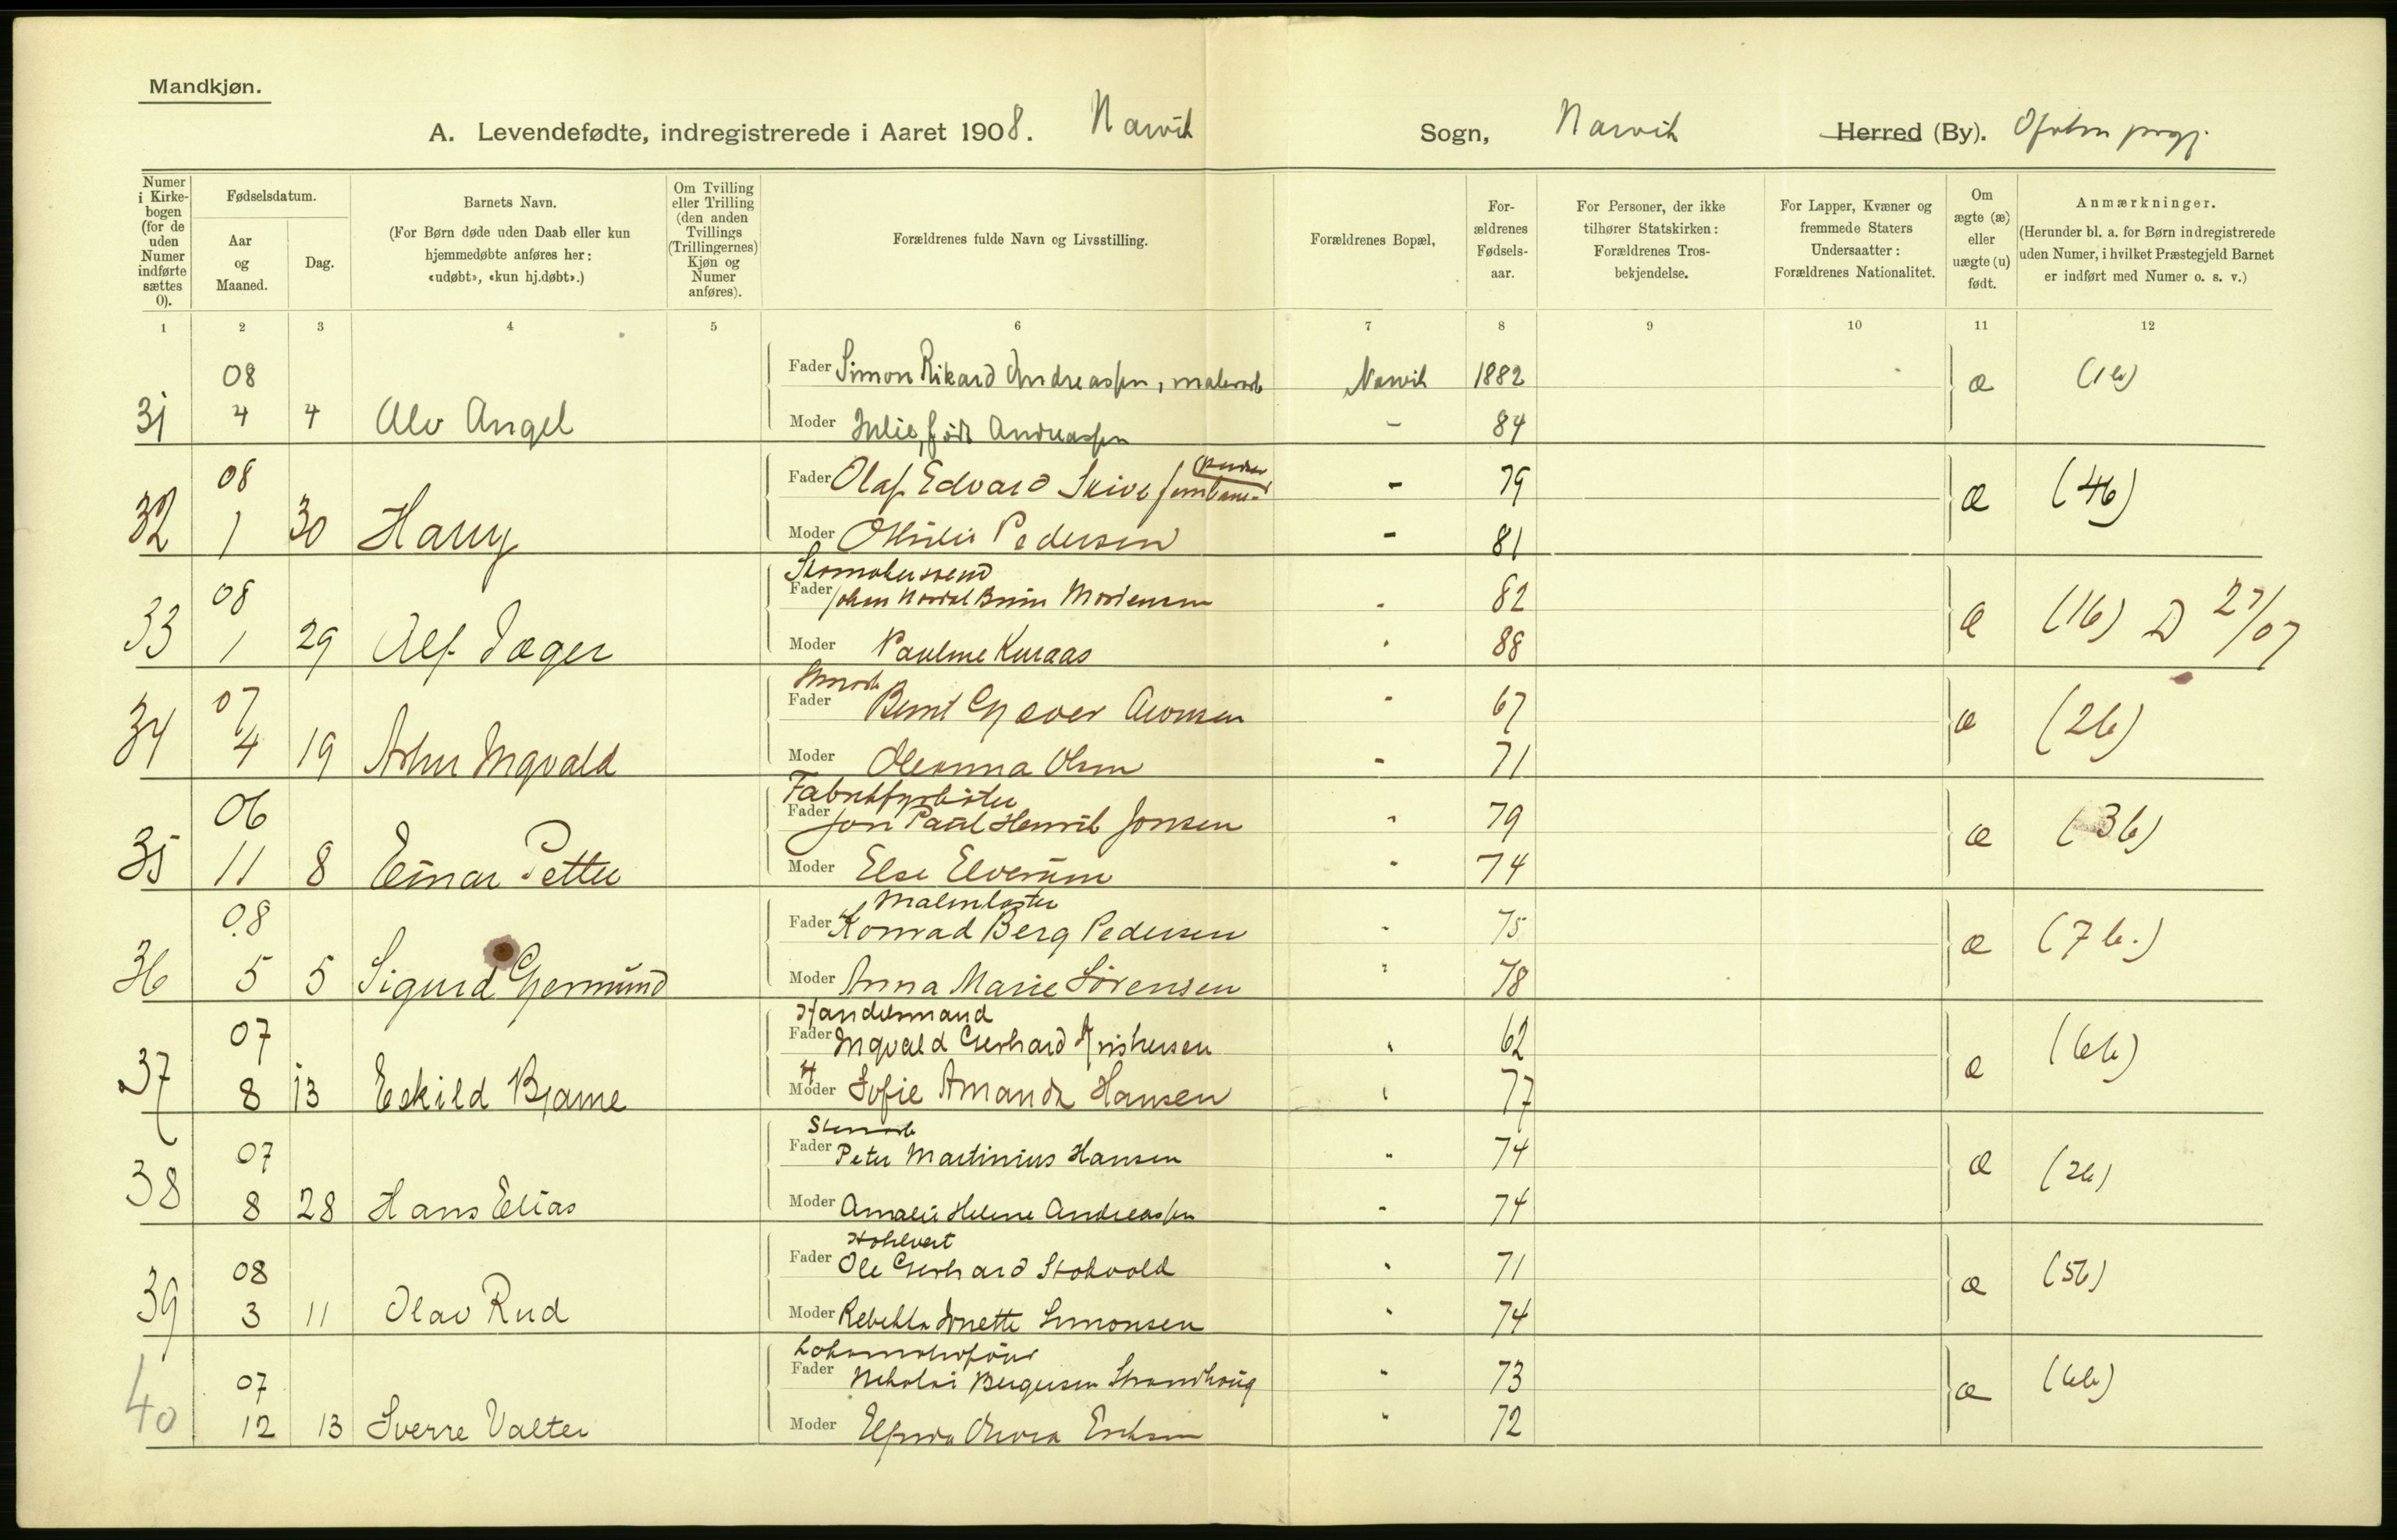 Mandkjøn.
A. Levendefødte, indregistrerede i Aaret 1908. Narvik Sogn, Narvik Herred (By). Ofoten prgj.
Numer i Kirkebogen (for de uden Numer indførte sættes 0).
Fødselsdatum.
Aar og Maaned.
Dag.
Barnets Navn.
(For Børn døde uden Daab eller kun hjemmedøbte anføres her: «udøbt», «kun hj.døbt».)
Om Tvilling eller Trilling (den anden Tvillings (Trillingernes) Kjøn og Numer anføres).
Forældrenes fulde Navn og Livsstilling.
Forældrenes Bopæl,
Forældrenes Fødselsaar.
For Personer, der ikke tilhører Statskirken: Forældrenes Trosbekjendelse.
For Lapper, Kvæner og fremmede Staters Undersaatter: Forældrenes Nationalitet.
Om ægte (æ) eller uægte (u) født.
Anmærkninger.
(Herunder bl. a. for Børn indregistrerede uden Numer, i hvilket Præstegjeld Barnet er indført med Numer o. s. v.)
1 2 3 4 5 6 7 8 9 10 11 12
08 Fader Simon Rikard Andreassen, malerarb Narvik 1882 æ (1b)
31 4 4 Alv Angel Moder Julie, født Andreassen - 84
08 Fader Olaf Edvard - 79 æ (4b)
32 1 30 Harry Moder Othilie Pedersen - 81
Skomakersvend
08 Fader Johan Mortensen " 82 æ (1b) D 27/07
33 1 29 Alf Jæger Moder Pauline Kuraas " 88
07 Fader Bernt " 67 æ (2b)
34 4 19 Arthur Ingvald Moder Oleanna Olsen " 71
Fabrikfyrbøter
06 Fader Jon Paul Henrik Jonsen " 79 æ (3b)
35 11 8 Einar Petter Moder Else Elverum " 74
Malmlaster
08 Fader Konrad Berg Pedersen " 75 æ (7b.)
36 5 5 Sigurd Germund Moder Anna Marie Sørensen " 78
Handelsmand
07 Fader Ingvald Gerhard Kristensen " 62 æ (6b)
37 8 13 Eskild Bjarne Moder Sofie Amanda Hansen " 77
Stenarb
07 Fader Peter Martinius Hansen " 74 æ (2b)
38 8 28 Hans Elias Moder Amalie Helene Andreassen " 74
08 Fader Ole Gerhard Skokvold " 71 æ (5b)
39 3 11 Olav Rud Moder Rebekka Jonette Simonsen " 74
07 Fader Nikolai Bergersen Strandhaug " 73 æ (6b)
40 12 13 Sverre Valter Moder 72